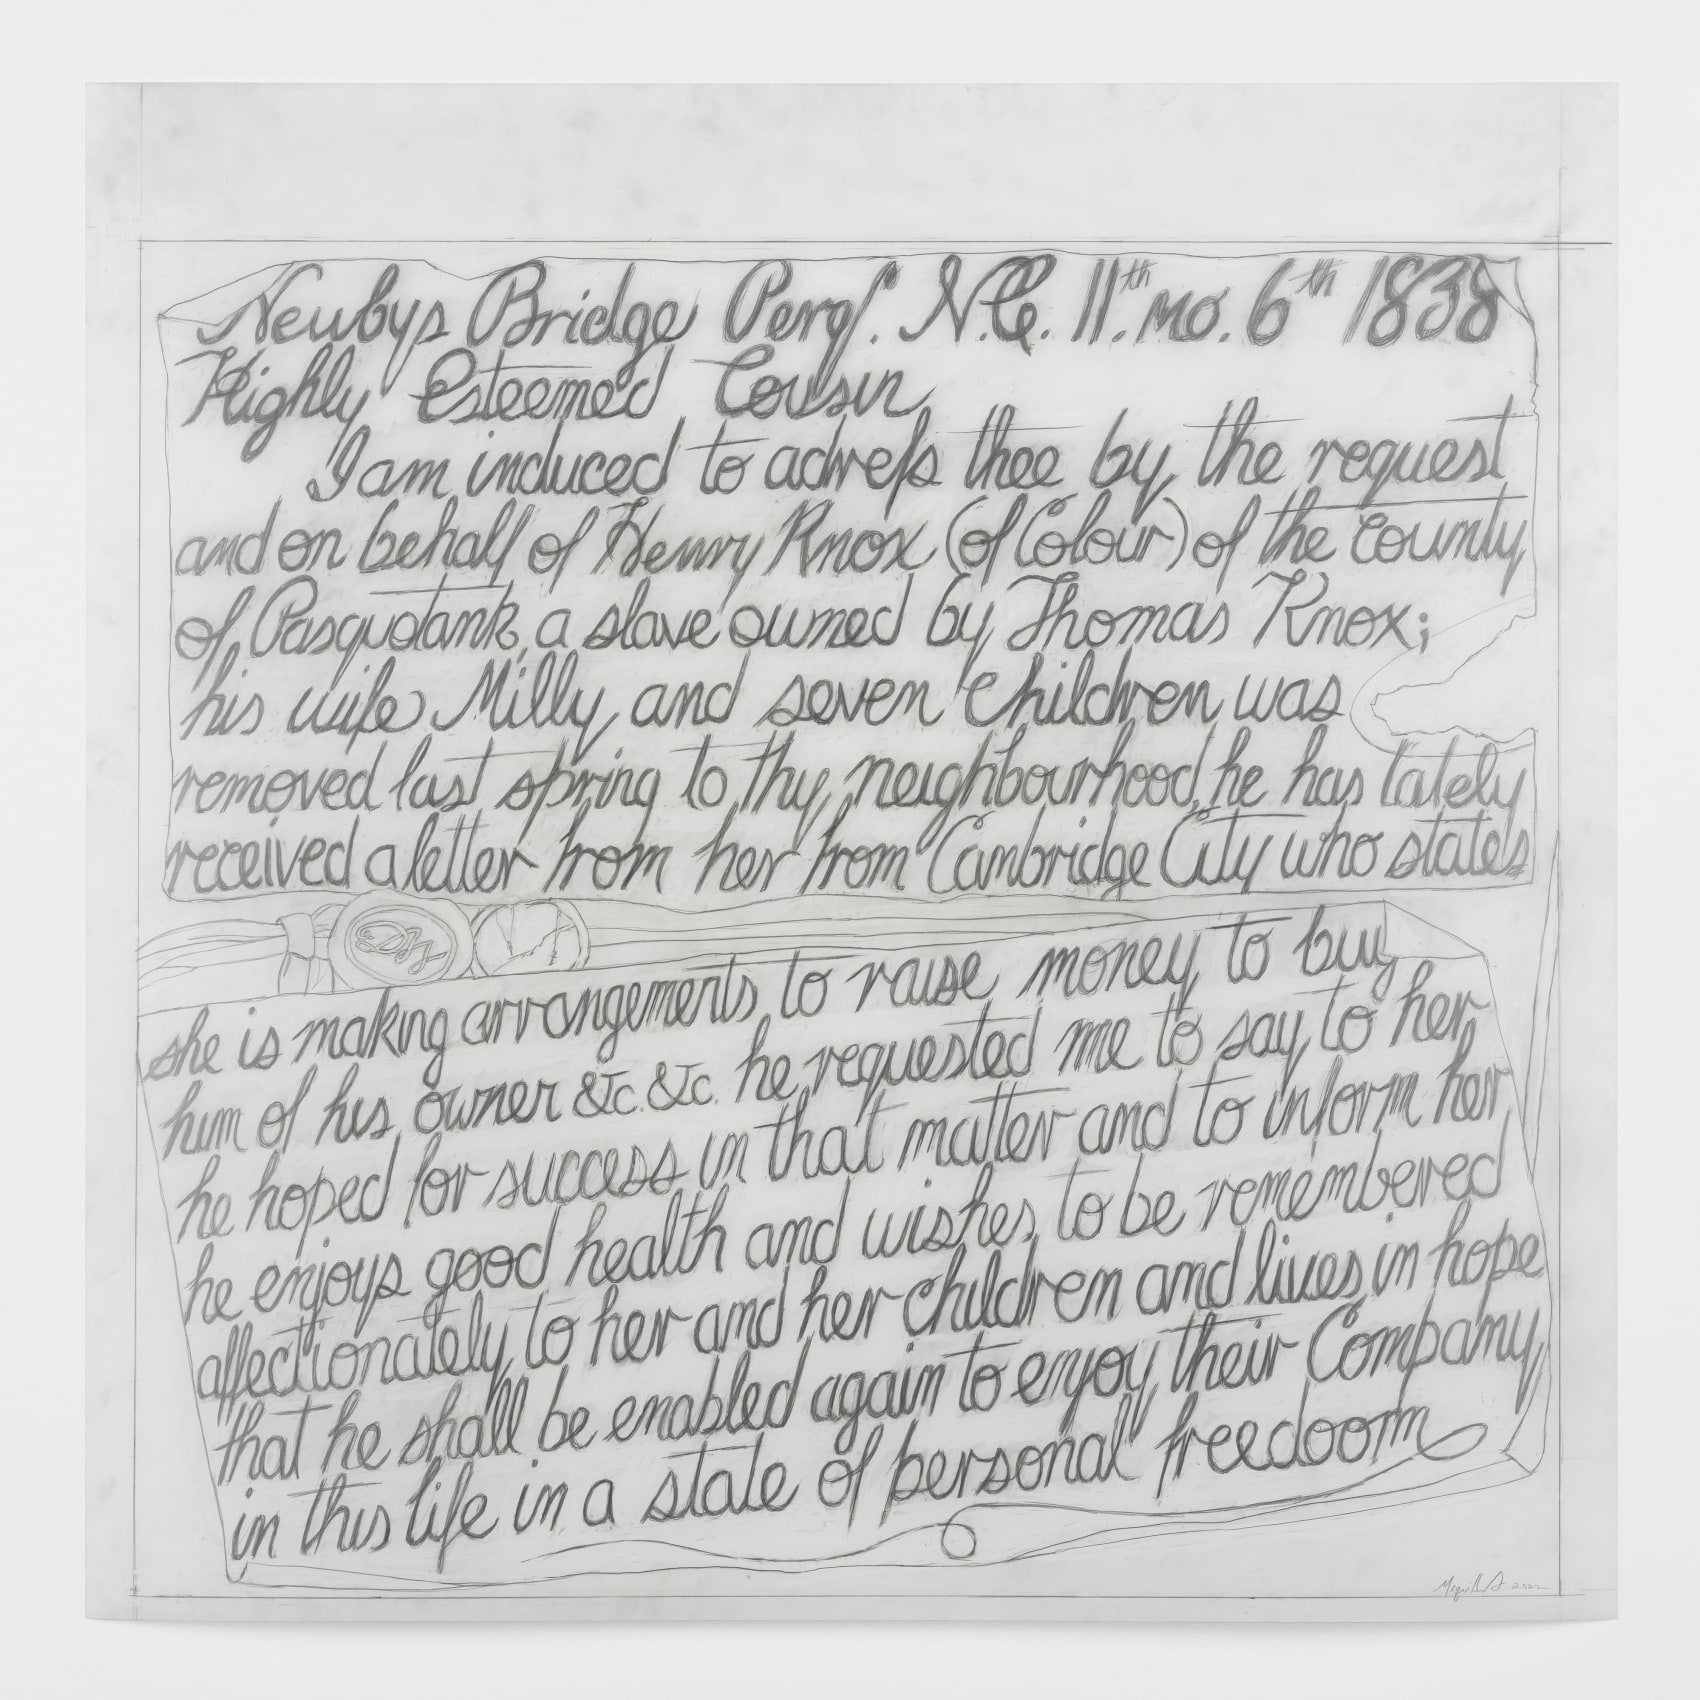 Newbys Bridge Perqs. N.C. 11.th mo. 6th 1838
Highly Esteemed Cousin
I am induced to adress thee by the request
and on behalf of Henry Knox (of Colour) of the County
of Pasquotank, a slave owned by Thomas Knox;
his wife Milly, and seven Children was
removed last spring to thy neighbourhood, he has lately
received a letter from her from Cambridge City who states
she is making arrangements to raise money to buy
him of his owner &c. &c. he requested me to say to her
he hoped for success in that matter and to inform her
he enjoys good health and wishes to be remembered
affectionately to her and her Children and lives in hope
that he shall be enabled again to enjoy their Company
in this life in a state of personal freedoom
2022